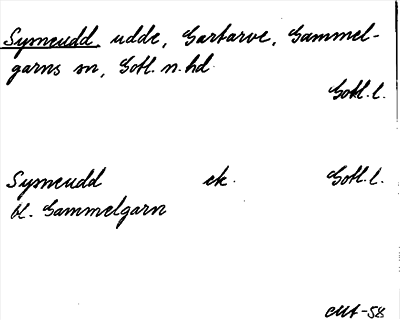 Sysneudd, udde, Gartarve, Gammel-
garns sn, Gotl. n. hd
Gotl. l.
Sysneudd ek. Gotl. l.
bl. Gammelgarn
-58